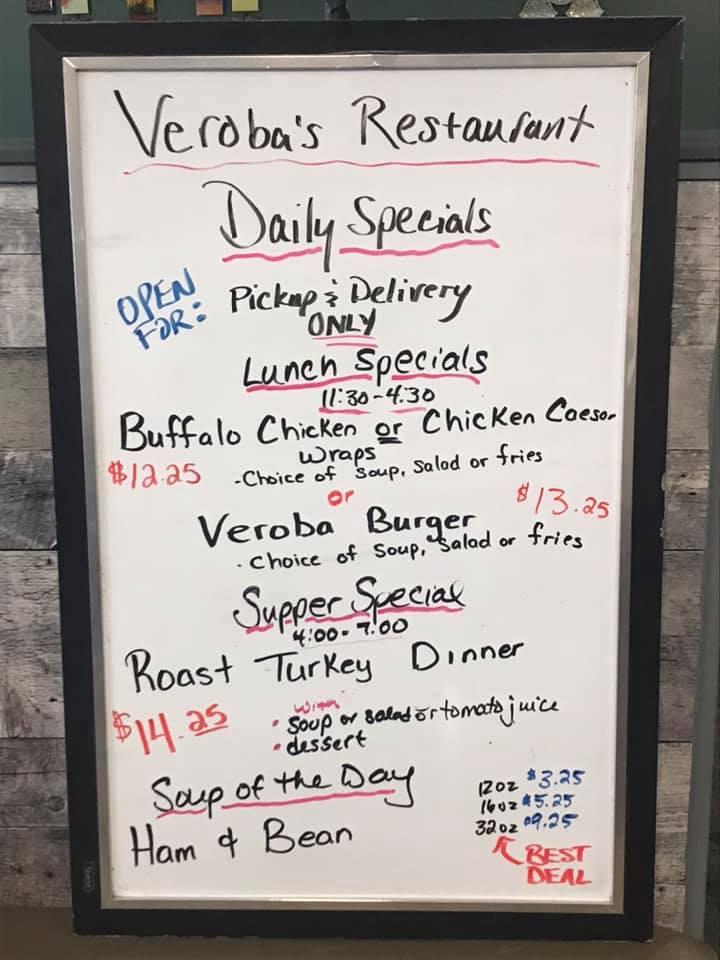 Veroba's Restaurant
Daily Specials
OPEN FOR: Pickup & Delivery
ONLY
Lunch Specials
11:30-4:30
Buffalo Chicken or Chicken Caesar
Wraps
$12.25 -Choice of Soup, Salad or fries
or
$13.25
Veroba Burger
- Choice of Soup, Salad or fries
Supper Special
4:00-7:00
Roast Turkey Dinner
$14.25
with
• Soup or salad or tomato juice
• dessert
Soup of the Day
Ham & Bean
12oz $3.25
16oz $5.25
32oz $9.25
BEST
DEAL